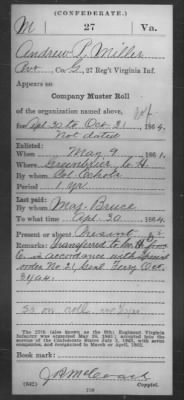 (CONFEDERATE.)
M 27 Va.
Andrew P. Miller
Pvt, Co. G, 27 Reg't Virginia Inf.
Appears on
Company Muster Roll
of the organization named above,
for Apl 30 to Oct 31, 1864.
Not dated
Enlisted:
When May 9, 1861.
Where Greenbrier C. H.
By whom Col Echols
Period 1 yr
Last paid:
By whom Maj. Bruce
To what time Apl. 30, 1864.
Present or absent Present
Remarks: Transferred to Co. H from
in accordance with Special
order No. 21 Genl Terry Oct.
The 27th (also known as the 8th) Regiment Virginia
Infantry was
service of the Confederate States July 1, 1861, with seven
companies, and reorganized in March or April, 1862.
Book mark:
(642) Copyist.